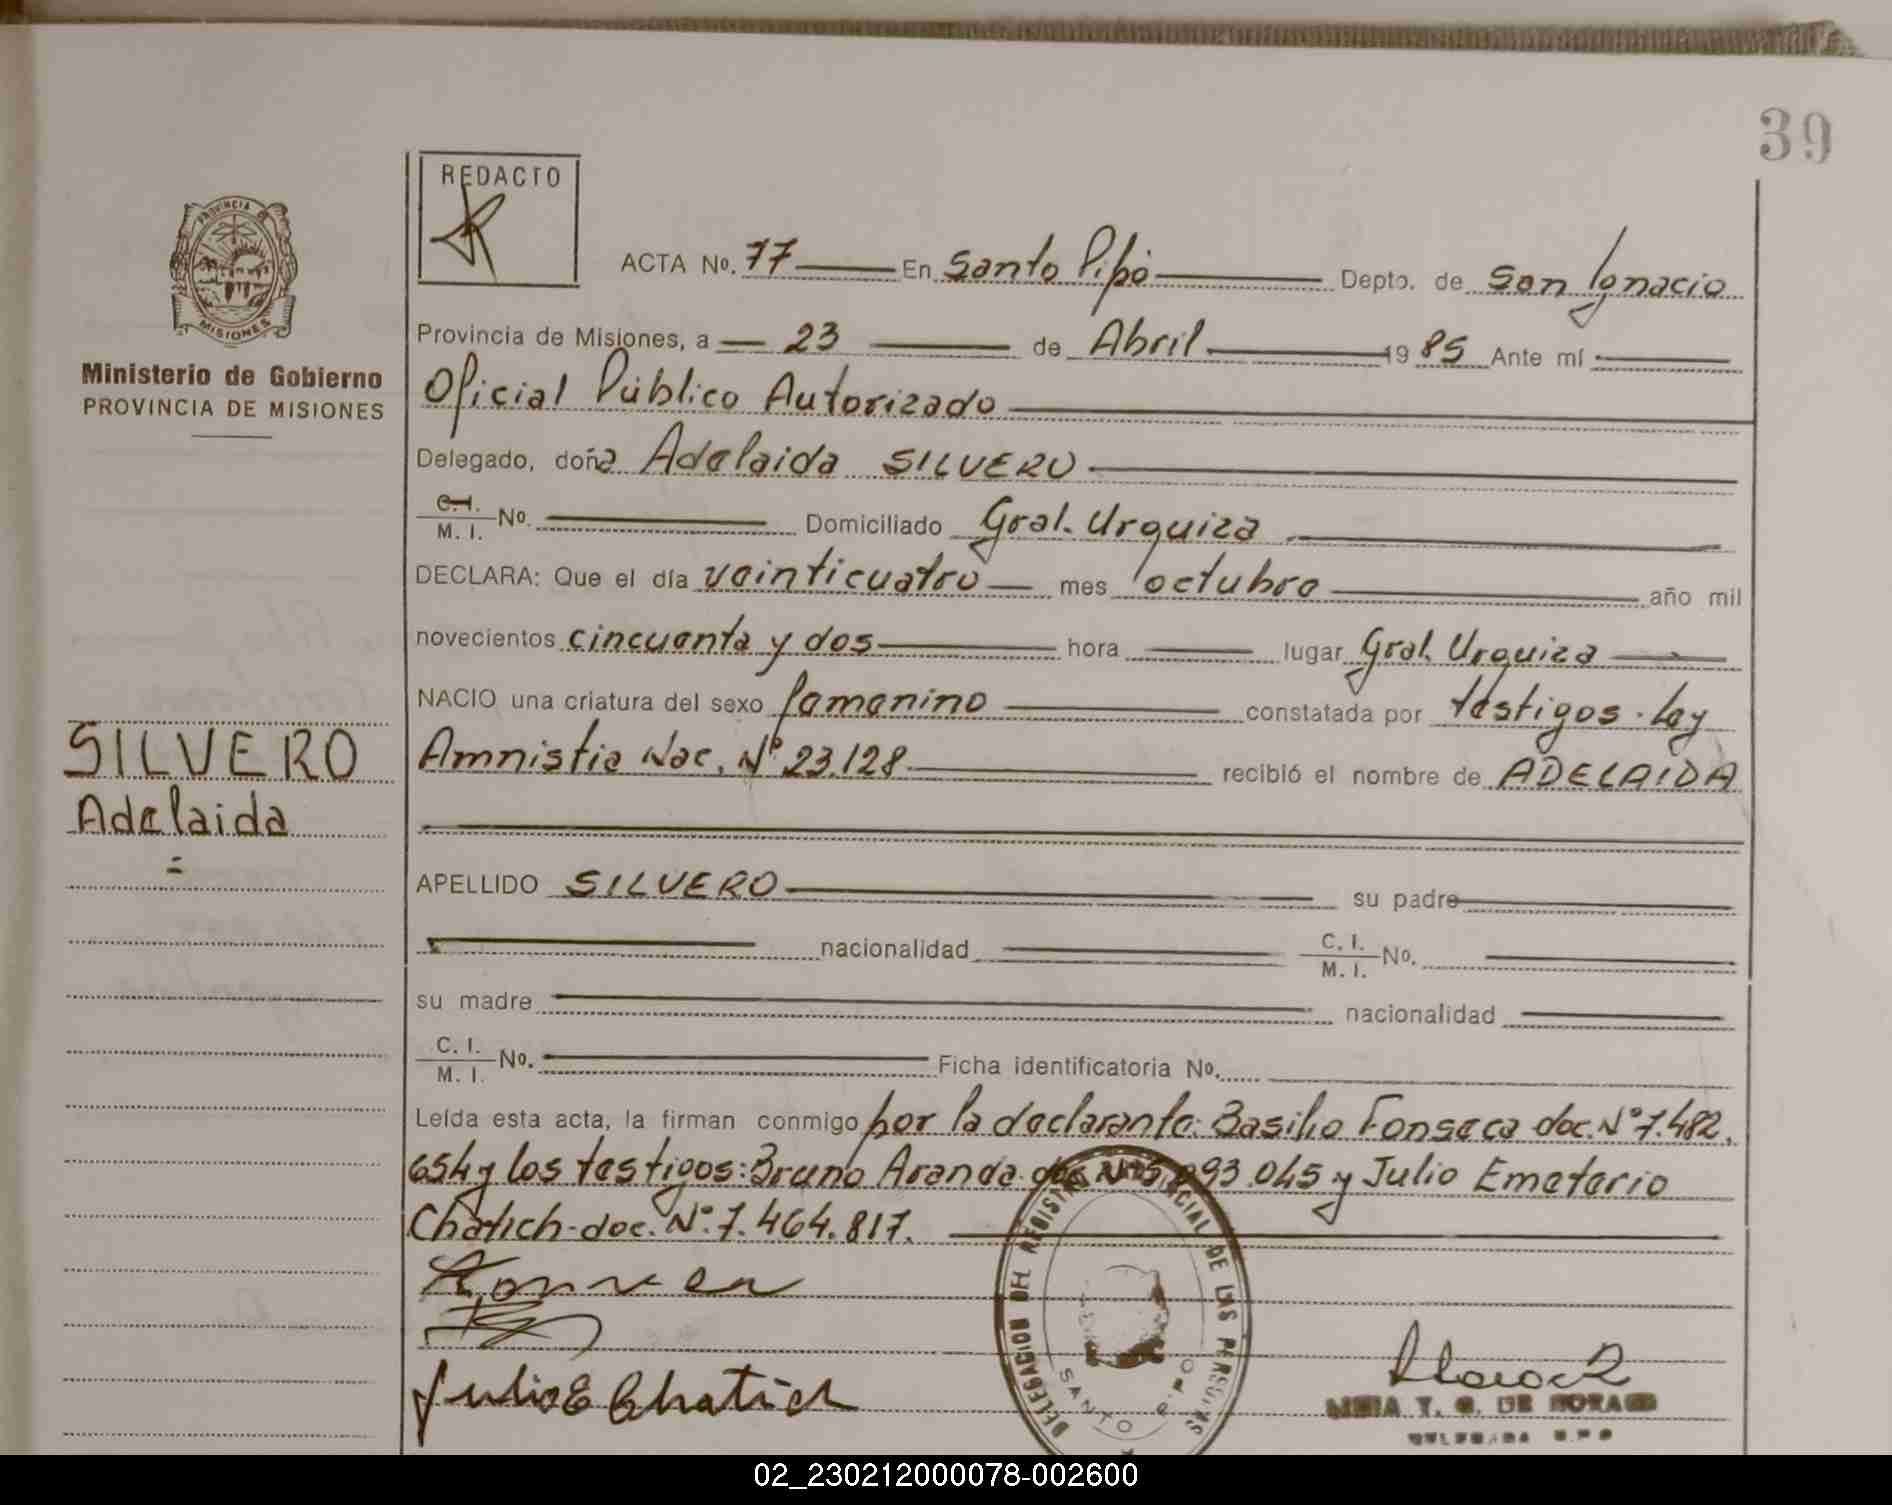 39
REDACTO
PROVINCIA DE
MISIONES
Ministerio de Gobierno
PROVINCIA DE MISIONES
ACTA No. 77 En Santo Pipó Depto. de San Ignacio
Provincia de Misiones, a 23 de Abril 1985 Ante mí
Oficial Público Autorizado
Delegado, doña Adelaida SILVERO
C.I. M. I. No. Domiciliado Gral. Urquiza
DECLARA: Que el día veinticuatro mes octubre año mil
novecientos cincuenta y dos hora lugar Gral. Urquiza
NACIO una criatura del sexo femenino constatada por testigos. Ley
Amnistia Nac. Nº 23.128 recibió el nombre de ADELAIDA
SILVERO
Adelaida
APELLIDO SILVERO su padre
nacionalidad C. I. M. I. No.
su madre nacionalidad
C. I. M. I. No. Ficha identificatoria No.
Leída esta acta, la firman conmigo por la declarante: Basilio Fonseca doc. Nº 7.482.
654 y los testigos: Bruno Aranda doc Nº 5.093.045 y Julio Emeterio
Chatich-doc. Nº 7.464.817.
Julio E Chatich
DELEGACION DEL REGISTRO PROVINCIAL DE LAS PERSONAS
SANTO PIPO
T. G. DE
02_230212000078-002600